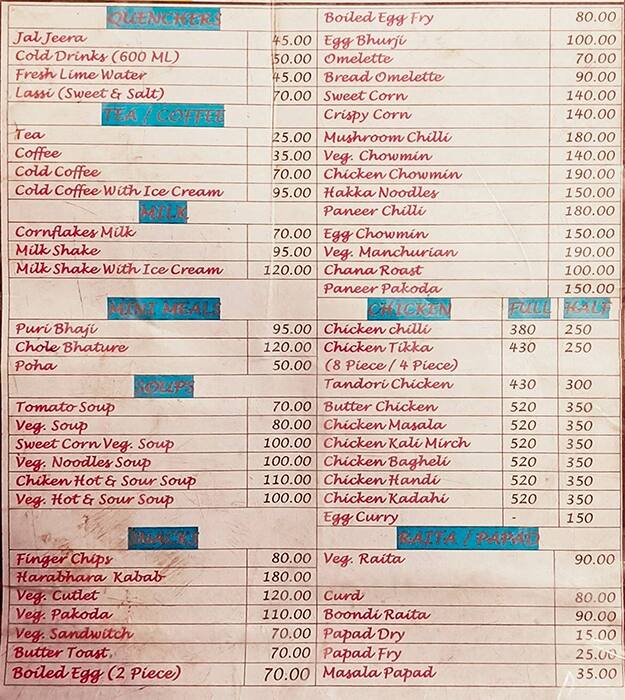 QUENCHERS
Jal Jeera 45.00
Cold Drinks (600 ML) 50.00
Fresh Lime Water 45.00
Lassi (Sweet & Salt) 70.00
TEA / COFFEE
Tea 25.00
Coffee 35.00
Cold Coffee 70.00
Cold Coffee With Ice Cream 95.00
MILK
Cornflakes Milk 70.00
Milk Shake 95.00
Milk Shake With Ice Cream 120.00
MINI MEALS
Puri Bhaji 95.00
Chole Bhature 120.00
Poha 50.00
SOUPS
Tomato Soup 70.00
Veg. Soup 80.00
Sweet Corn Veg. Soup 100.00
Veg. Noodles Soup 100.00
Chiken Hot & Sour Soup 110.00
Veg. Hot & Sour Soup 100.00
SNACKS
Finger Chips 80.00
Harabhara Kabab 180.00
Veg. Cutlet 120.00
Veg. Pakoda 110.00
Veg. Sandwitch 70.00
Butter Toast. 70.00
Boiled Egg (2 Piece) 70.00
Boiled Egg Fry 80.00
Egg Bhurji 100.00
Omelette 70.00
Bread Omelette 90.00
Sweet Corn 140.00
Crispy Corn 140.00
Mushroom Chilli 180.00
Veg. Chowmin 140.00
Chicken Chowmin 190.00
Hakka Noodles 150.00
Paneer Chilli 180.00
Egg Chowmin 150.00
Veg. Manchurian 190.00
Chana Roast 100.00
Paneer Pakoda 150.00
CHICKEN FULL HALF
Chicken chilli 380 250
Chicken Tikka 430 250
(8 Piece / 4 Piece)
Tandori Chicken 430 300
Butter Chicken 520 350
Chicken Masala 520 350
Chicken Kali Mirch 520 350
Chicken Bagheli 520 350
Chicken Handi 520 350
Chicken Kadahi 520 350
Egg Curry - 150
RAITA / PAPAD
Veg. Raita 90.00
Curd 80.00
Boondi Raita 90.00
Papad Dry 15.00
Papad Fry 25.00
Masala Papad 35.00